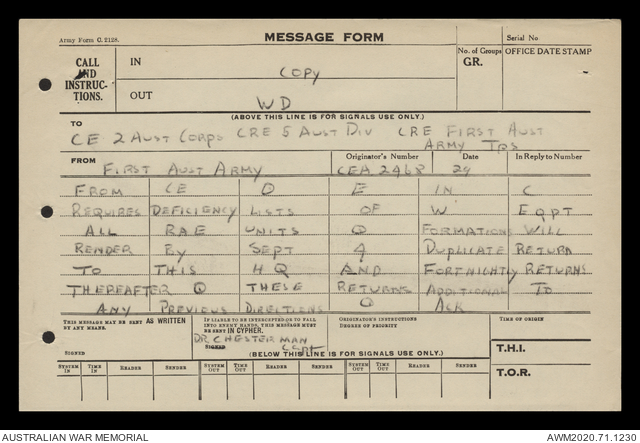 Army Form C. 2128.
MESSAGE FORM
Serial No.
CALL AND INSTRUC-TIONS.
IN
COPY
No. of Groups
GR.
OFFICE DATE STAMP
OUT
WD
(ABOVE THIS LINE IS FOR SIGNALS USE ONLY.)
TO
CE 2 AUST CORPS CRE 5 AUST DIV CRE FIRST AUST
ARMY TPS
FROM
FIRST AUST ARMY
Originator's Number
CEA 2468
Date
29
In Reply to Number
FROM CE O E IN C
REQUIRES DEFICIENCY LISTS OF W EQPT
ALL RAE UNITS Q FORMATIONS WILL
RENDER BY SEPT 4 DUPLICATE RETURN
TO THIS HQ AND FORTNIGHTLY RETURNS
THEREAFTER Q THESE RETURNS ADDITIONAL TO
ANY PREVIOUS DIRECTIONS Q ACK
THIS MESSAGE MAY BE SENT AS WRITTEN BY ANY MEANS.
SIGNED
IF LIABLE TO BE INTERCEPTED OR TO FALL INTO ENEMY HANDS, THIS MESSAGE MUST BE SENT IN CYPHER.
DR CHESTERMAN
SIGNED Capt
ORIGINATOR'S INSTRUCTIONS
DEGREE OF PRIORITY
TIME OF ORIGIN
(BELOW THIS LINE IS FOR SIGNALS USE ONLY.)
T.H.I.
SYSTEM IN TIME IN READER SENDER SYSTEM OUT TIME OUT READER SENDER SYSTEM OUT TIME OUT READER SENDER
T.O.R.
AUSTRALIAN WAR MEMORIAL
AWM2020.71.1230